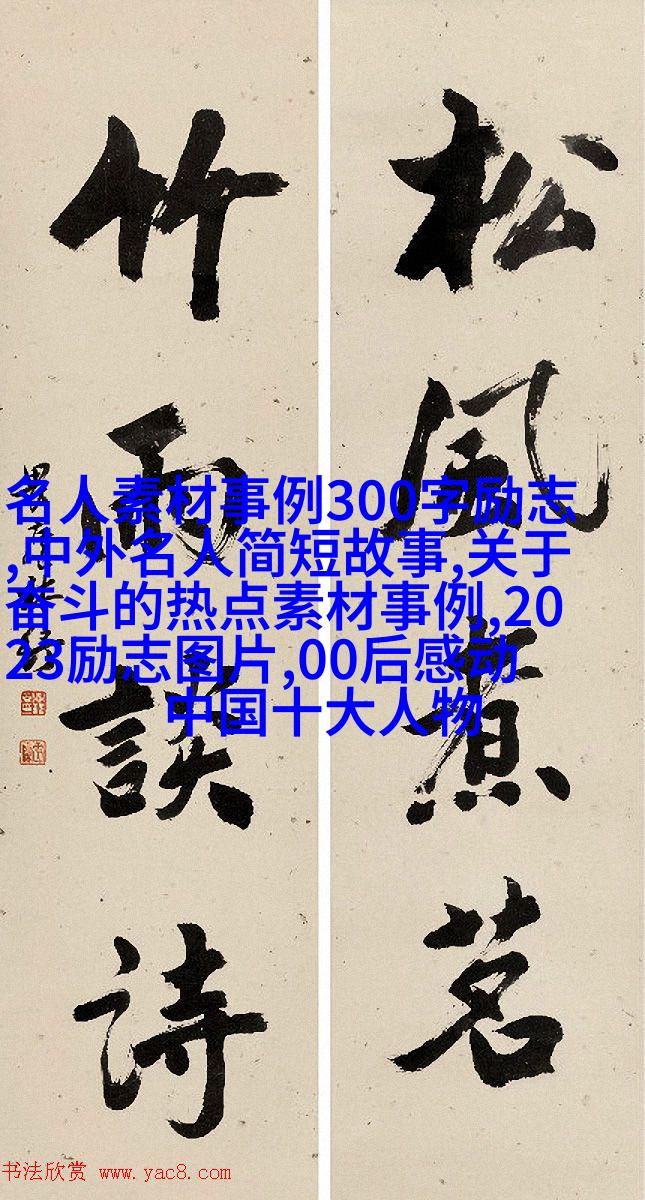 松風煮茗
竹雨談詩
名人素材事例300字励志
,中外名人简短故事,关于
奋斗的热点素材事例,20
23励志图片,00后感动
中国十大人物
书法欣赏 www.yac8.com